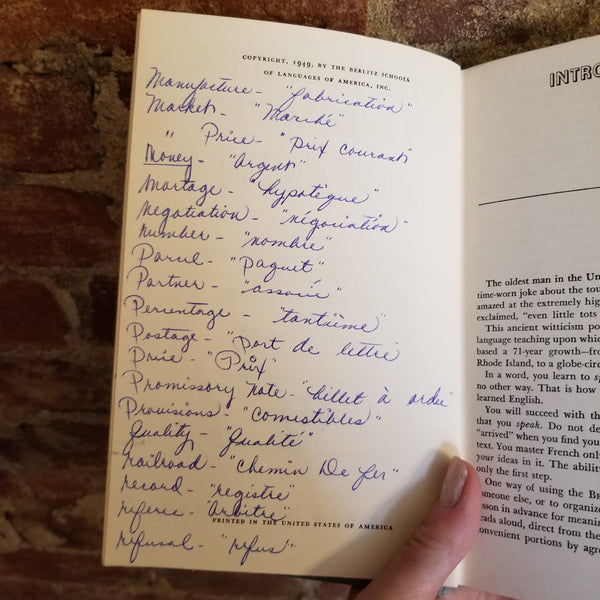 COPYRIGHT, 1949, BY THE BERLITZ SCHOOLS
OF LANGUAGES OF AMERICA, INC.
Manufacture - "fabrication"
Market - "Marché"
" Price - "prix courant"
Money - "Argent"
Mortage - "hypotèque"
Negotiation - "négociation"
Number - "nombre"
Parcel - "paquet"
Partner - "associé"
Percentage - "tantième"
Postage - "port de lettre"
Price - "Prix"
Promissory Note - "billet à ordre"
Provisions - "comestibles"
Quality - "Qualité"
Railroad - "Chemin De fer"
record - "registre"
referee - "Arbitre"
PRINTED IN THE UNITED STATES OF AMERICA
refusal - "refus"
INTRO
The oldest man in the Un
time-worn joke about the tou
amazed at the extremely hig
exclaimed, "even little tots
This ancient witticism po
language teaching upon whic
based a 71-year growth—fro
Rhode Island, to a globe-circ
In a word, you learn to sp
no other way. That is how
learned English.
You will succeed with th
that you speak. Do not de
"arrived" when you find you
text. You master French only
your ideas in it. The ability
only the first step.
One way of using the BE
someone else, or to organiz
lesson in advance for meanin
reads aloud, direct from the
convenient portions by agre